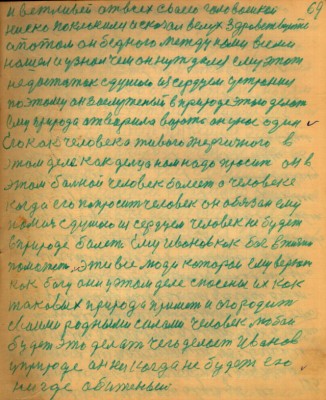 69
и ветливей отвсех своею головошкой
низко поклонил и сказал вслух здравствуйте
а потом он бедного между ними всеми
нашол и узнал чем он нуждает ему этот
недостаток с душою и сердцем устраним
поэтому он заслуженой в природе этого делать
Ему природа отворила ворота он у нас один
Его как человека живого энергичного в
этом деле как делца нам надо просит он в
этом балной человек болеет о человеке
когда его попросит человек он обязан ему
помоч с душою и сердцем человек не будет
в природе болет Ему Иванов как бог в жизни
поможет, эти все люди которои Ему верют
как богу они у этом деле спасены их как
таковых природа примет и огородит
своими родными силами человек любой
будет это делать чего делает Иванов
у природе он никогда не будет его
нигде обиженый